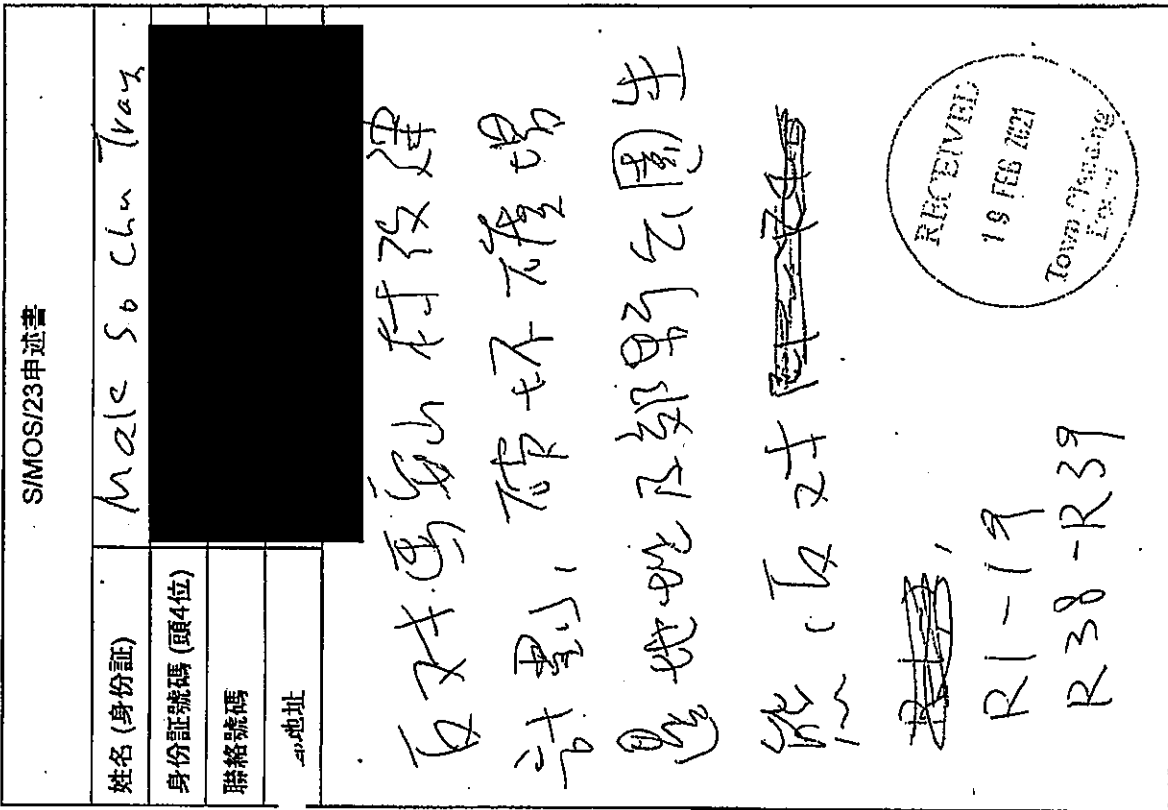 S/MOS/23申述書
姓名 (身份証) Mak So Chu Tray
身份証號碼 (頭4位)
聯絡號碼
地址
反对馬鞍山村發建
計劃,破坏存
地 及郊野公園生
,反对
R1-19
R38-R39
RECEIVED
19 FEB 2021
Town Planning
Board